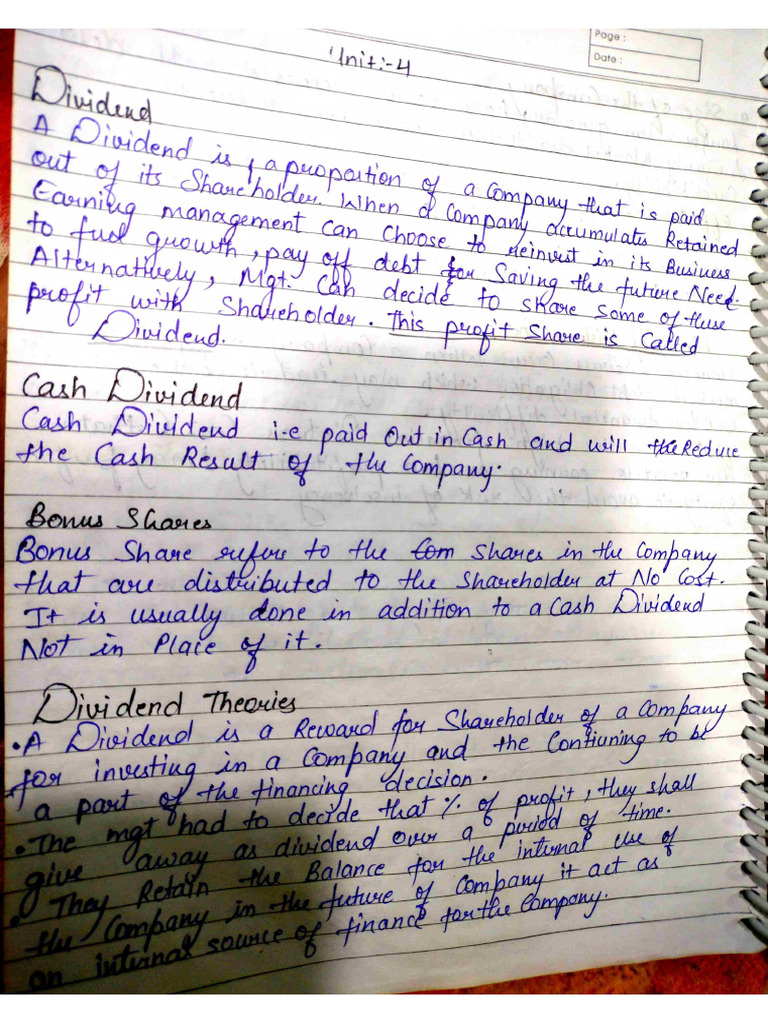 Page :
Date :
Unit:-4
Dividend
A Dividend is, a proportion of a company that is paid
out of its Shareholder. When a Company accumulates Retained
Earning management can choose to reinvest in its Business
to fuel growth, pay off debt for Saving the future Need.
Alternatively, Mgt. Can decide to share some of these
profit with Shareholder. This profit Share is Called
Dividend.
Cash Dividend
Cash Dividend i.e paid Out in Cash and will the Reduce
the Cash Result of the Company.
Bonus Shares
Bonus Share refers to the Com Shares in the Company
that are distributed to the Shareholder at No Cost.
It is usually done in addition to a Cash Dividend
Not in Place of it.
Dividend Theories
• A Dividend is a Reward for Shareholder of a Company
for investing in a Company and the Contiuning to be
a part of the financing decision.
• The mgt had to decide that % of profit, they shall
give away as dividend over a period of time.
• They Retain the Balance for the internal Use of
the Company in the future of Company it act as
an internal source of finance for the Company.